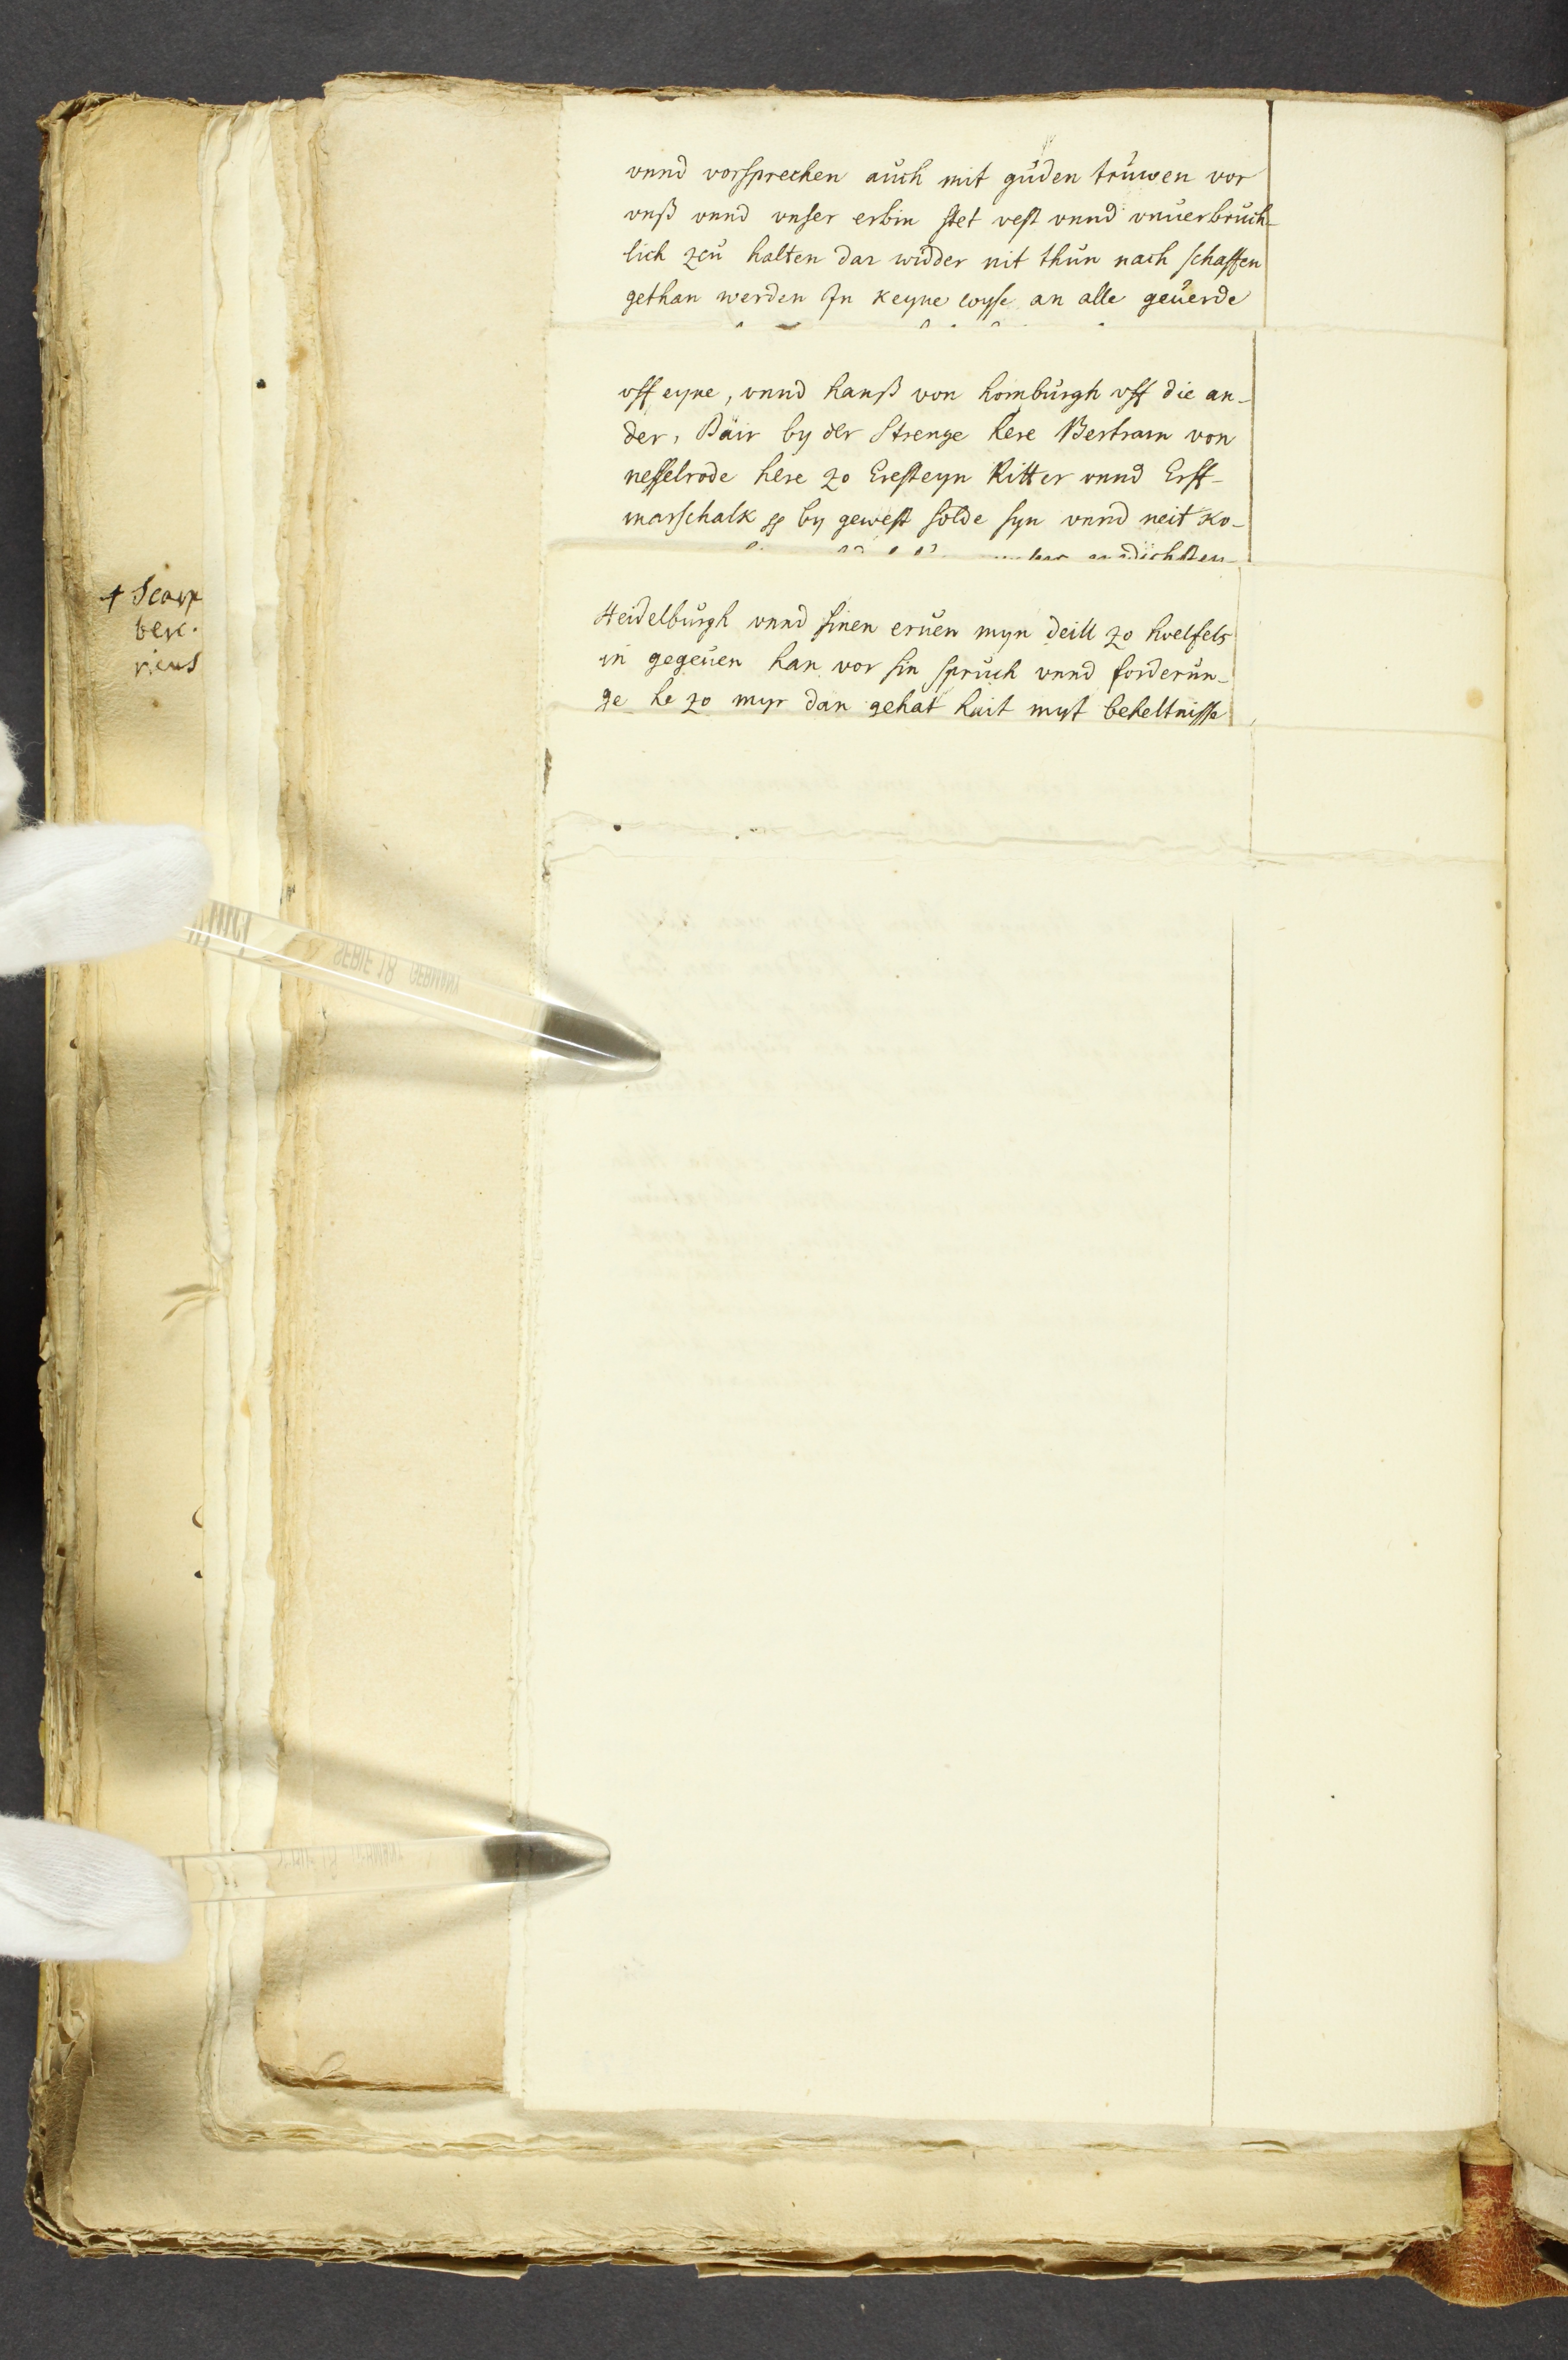 vnnd vorsprechen aŭch mit gŭden trŭwen vor
vnß vnnd vnser erbin stet vest vnnd vnŭerbrŭch-
lich zcŭ halten dar widder nit thŭn nach schaffen
gethan werden Jn keyne wyse an alle geŭerde
vff eyne, vnnd hanß von hombŭrgh vff die an-
der, Dair by der Strenge here Bertram von
nesselrode here zo Eresteyn Ritter vnnd Erff-
marschalk by gewest solde syn vnnd neit ko-
Heidelbŭrgh vnnd sinen erŭen myn deill zo hoelfels
in gegeŭen han vor sin sprŭch vnnd forderŭn-
ge he zo myr dan gehat hait myt beheltnisse
SERIE 18 GERMANY